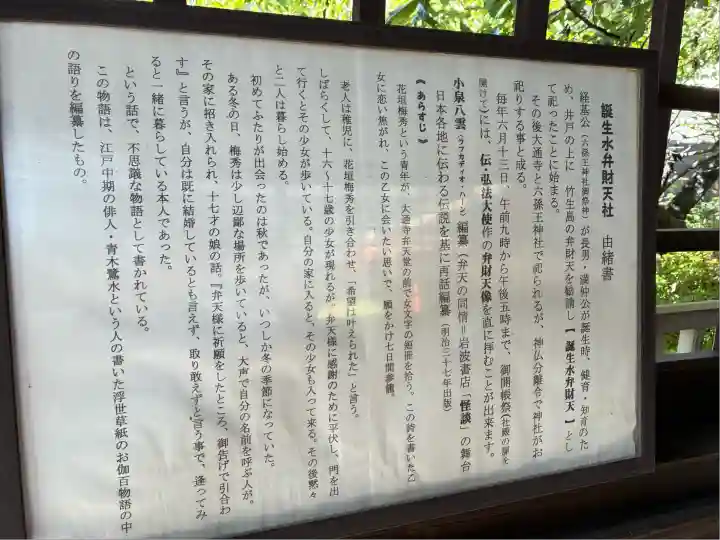 誕生水弁財天社　由緒書
経基公（六孫王神社御祭神）が長男・満仲公が誕生時、健育・知育のた
め、井戸の上に　竹生島の弁財天を勧請し【誕生水弁財天】とし
て祀ったことに始まる。
その後大通寺と六孫王神社で祀られるが、神仏分離令で神社がお
祀りする事と成る。
毎年六月十三日、午前九時から午後五時まで、御開帳祭（社殿の扉を
開けて）には、伝・弘法大使作の弁財天像を直に拝むことが出来ます。
小泉八雲（ラフカディオ・ハーン）編纂（弁天の同情＝岩波書店「怪談」の舞台
日本各地に伝わる伝説を基に再話編纂（明治三十七年出版）
《あらすじ》
花垣梅秀という青年が、大通寺弁天堂の前で女文字の短冊を拾う。この詩を書いた乙
女に恋い焦がれ、この乙女に会いたい思いで、願をかけ七日間参籠。
老人は稚児に、花垣梅秀を引き合わせ、「希望は叶えられた」と言う。
しばらくして、十六～十七歳の少女が現れるが、弁天様に感謝のために平伏し、門を出
て行くとその少女が歩いている。自分の家に入ると、その少女も入って来る。その後黙々
と二人は暮らし始める。
初めてふたりが出会ったのは秋であったが、いつしか冬の季節になっていた。
ある冬の日、梅秀は少し辺鄙な場所を歩いていると、大声で自分の名前を呼ぶ人が。
その家に招き入れられ、十七才の娘の話。『弁天様に祈願をしたところ、御告げで引合わ
す』と言うが、自分は既に結婚しているとも言えず、取り敢えずと言う事で、逢ってみ
ると一緒に暮らしている本人であった。
という話で、不思議な物語として書かれている。
この物語は、江戸中期の俳人・青木鷺水という人の書いた浮世草紙のお伽百物語の中
の語りを編纂したもの。